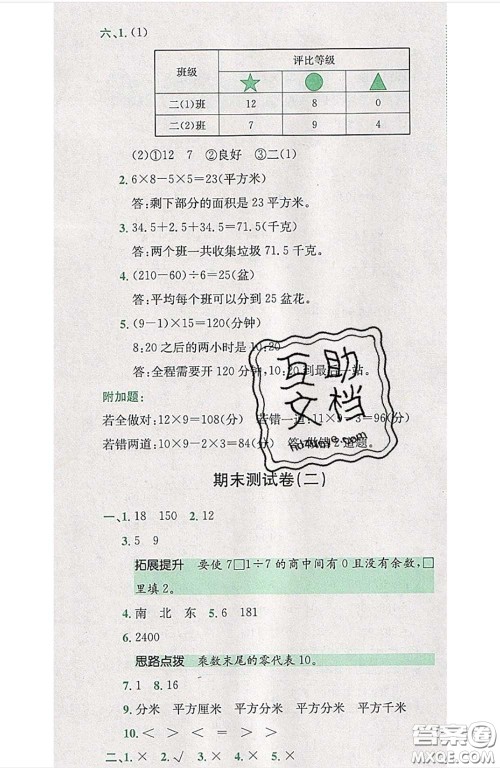 六、1. (1)
班级 评比等级
★ ● ▲
二(1)班 12 8 0
二(2)班 7 9 4
(2)①12 7 ②良好 ③二(1)
2. 6×8-5×5=23(平方米)
答:剩下部分的面积是 23 平方米。
3. 34.5+2.5+34.5=71.5(千克)
答:两个班一共收集垃圾 71.5 千克。
4. (210-60)÷6=25(盆)
答:平均每个班可以分到 25 盆花。
5. (9-1)×15=120(分钟)
8:20 之后的两小时是 10:20
答:全程需要开 120 分钟,10:20 到 一站。
附加题:
若全做对:12×9=108(分) 若错一道:11×9-3=96(分)
若错两道:10×9-2×3=84(分) 答:做错 2 道题。
互助文档
hdzuoye.com
期末测试卷(二)
一、1. 18 150 2. 12
3. 5 9
拓展提升 要使 7□1÷7 的商中间有 0 且没有余数,□
里填 2。
4. 南 北 东 5. 6 181
6. 2400
思路点拨 乘数末尾的零代表 10。
7. 1 8. 16
9. 分米 平方厘米 平方分米 米 平方米
10. < < > = > <
二、1. × 2. √ 3. × 4. × 5. ×
答案圈
MXQE.COM